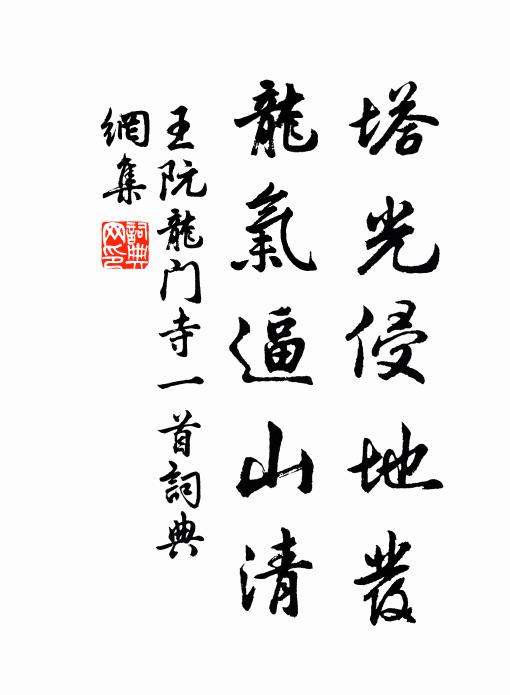 塔光侵地發
龍氣逼山清
王阮龍门寺一首詞典
網集
詞典
网印